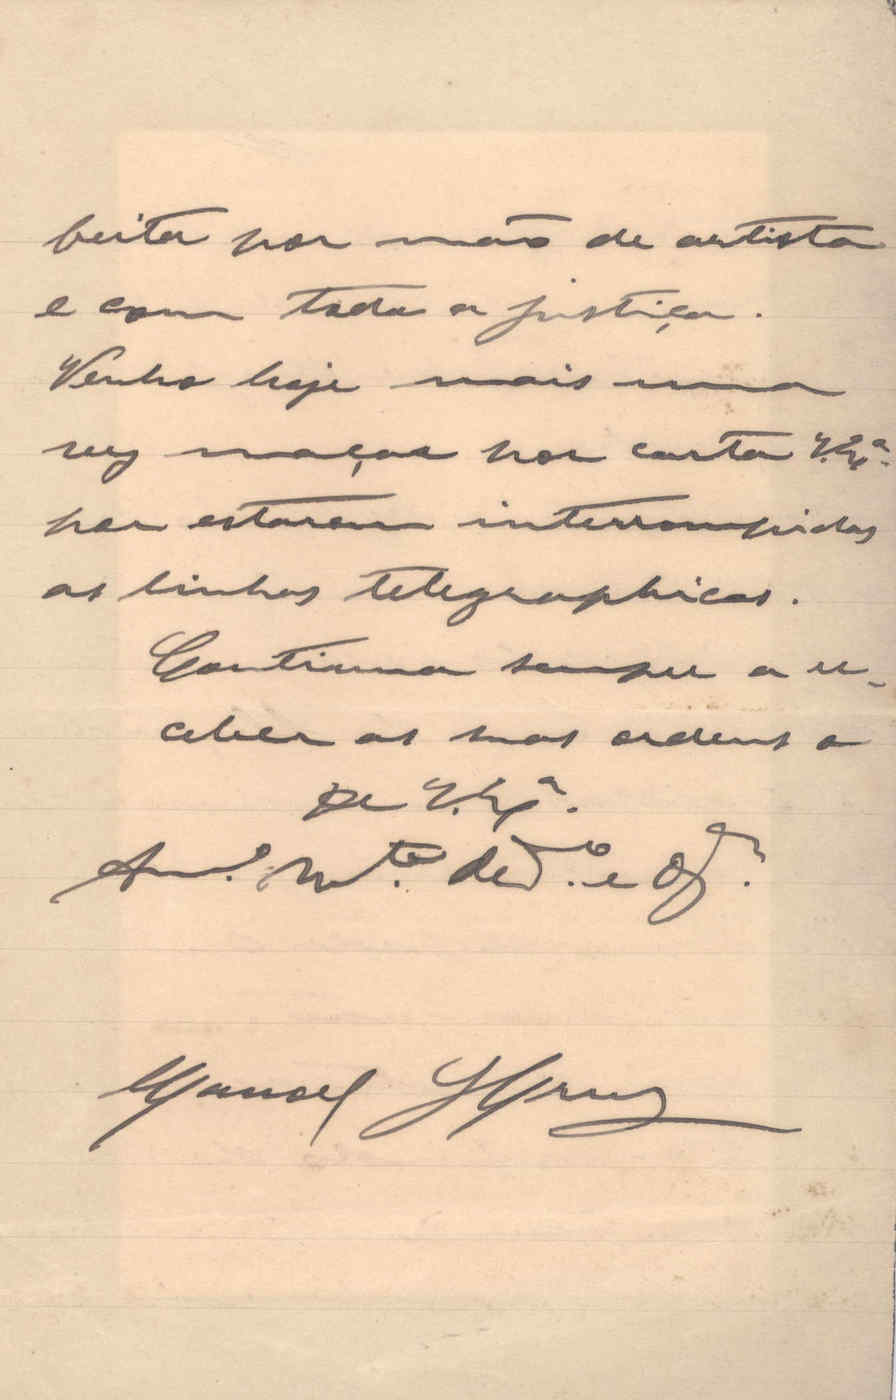 feita por mão de artista
e com toda a justiça.
Venho hoje mais uma
vez maçar por carta V. Exª.
por estarem interrompidas
as linhas telegraphicas.
Continua sempre a re-
ceber as suas ordens o
De V. Exª.
Amº. Mtº. dedº. e
Manoel